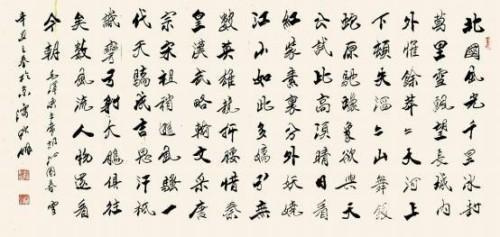 北國風光千里冰封
萬里雪飄望長城內
外惟餘莽々大河上
下頓失滔々山舞銀
蛇原馳蠟象欲與天
公試比高須晴日看
紅裝素裹分外妖嬈
江山如此多嬌引無
數英雄競折腰惜秦
皇漢武略輸文采唐
宗宋祖稍遜風騷一
代天驕成吉思汗祇
識彎弓射大鵰俱往
矣數風流人物還看
今朝 毛澤東主席詞沁園春雪
辛丑之春於京